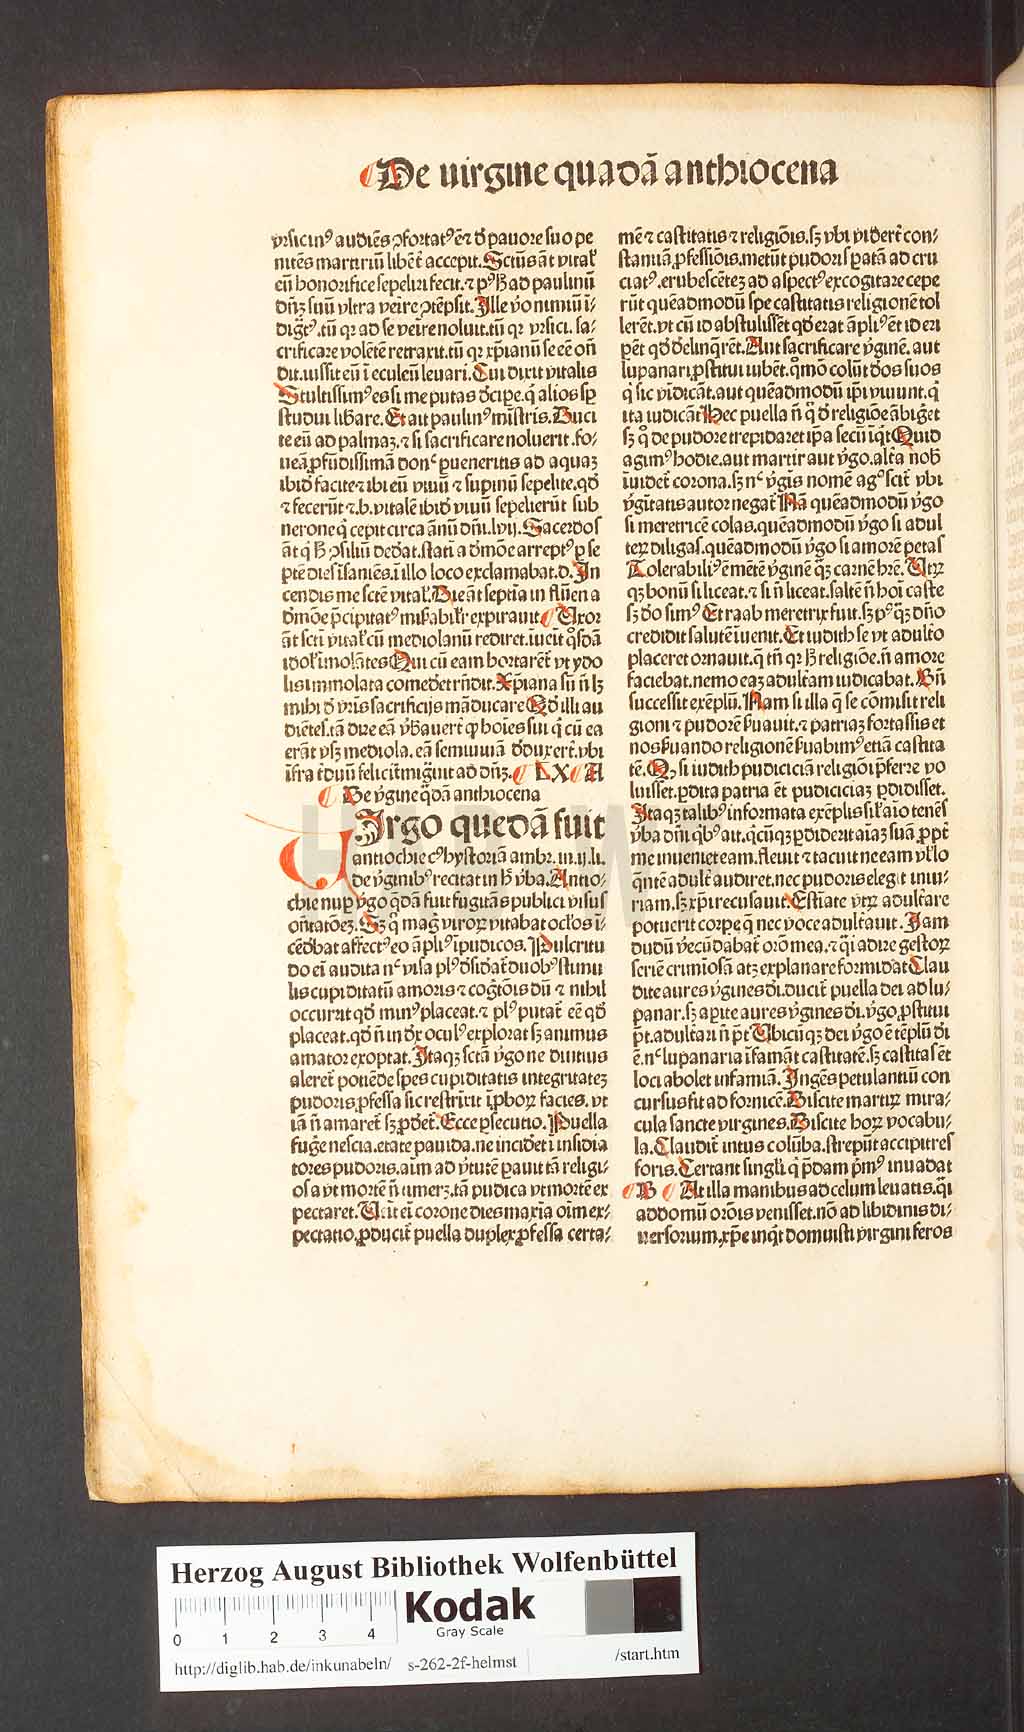 De uirgine quadā anthiocena
vrsicinꝰ audiēs ꝯfortatꝰ ē ⁊ đ pauore suo pe
nitēs martiriū libēt accepit. Sctūs āt vital
eū honorifice sepeliri fecit. ⁊ pꝰ ħ ad paulinū
dn̄ȝ suū vltra veīre ꝯtēpsit. Ille vo nimiū ī-
digtꝰ. tū qꝛ ad se veīre noluit. tū qꝛ vrsici. sa-
crificare volētē retraxit. tū qꝛ xp̄ianū se eē on̄
dit. iussit eū ī eculeū leuari. Cui dixit vitalis
Stultissimꝰ es si me putas dcipe. q̄ alios sꝑ
studui libare. Et ait paulinꝰ mīstris. Duci
te eū ad palmaȝ. ⁊ si sacrificare noluerit. fo-
ueā ꝓfūdissimā donᶜ ꝑueneritis ad aquaȝ
ibiđ facite ⁊ ibi eū viuū ⁊ supinū sepelite. qđ
⁊ fecerūt ⁊ .b. vitalē ibiđ viuū sepelierūt sub
nerone q̄ cepit circa ānū dn̄i. lvij. Sacerdos
āt q̄ ħ ꝯsiliū dedat. stati a dmōe arreptꝰ ꝑ se
ptē dies īsaniēs. ī illo loco exclamabat. d. In
cendis me scte vital. Die āt septīa in fluēn a
dmōe p̄cipitatꝰ misabilr expirauit Uxor
āt scti vital cū mediolanū rediret. iueit q̊sdā
idol īmolātes Qui cū eam hortarēt vt ydo
lis immolata comedet rn̄dit. Xp̄iana sū n̄ lȝ
mihi đ vr̄is sacrificijs māducare Qđ illi au
diētes. tā dire eā vbauert ꝙ hoīes sui q̄ cū ea
erāt vsȝ mediola. eā semiuiuā dduxert. vbi
īfra tduū felicit migͣuit ad dn̄ȝ. LX A
De vgine q̄dā anthiocena
Irgo quedā fuit
antiochie cꝰ hystoriā ambr. in .ij. li.
de vginibꝰ recitat in ħ vba. Antio-
chie nuꝑ vgo q̄dā fuit fugitās publici visus
on̄tatōeȝ. Sȝ q̄ magꝭ viroꝝ vitabat oclos ī-
cēdbat affectꝰ eo āpliꝰ īpudicos. Pulcritu
do eī audita nᶜ visa plꝰ dsidat duobꝰ stimu
lis cupiditatū amoris ⁊ cogtōis dū ⁊ nibil
occurit qđ minꝰ placeat. ⁊ plꝰ putat eē qđ
placeat. qđ n̄ in dx oculꝰ explorat sȝ animus
amator exoptat. Itaqȝ sctā vgo ne diutius
aleret potiēde spes cupiditatis integritateȝ
pudoris ꝓfessa sic restrixit īꝓboꝝ facies. vt
iā n̄ amaret sȝ ꝓdet. Ecce ꝑsecutio. Puella
fuge nescia. etate pauida. ne incidet ī insidia
tores pudoris. aīm ad vtutē pauit tā religi-
osa vt mortē n̄ timeȝ. tā pudica vt mortē ex
pectaret. Ucit eī corone dies maxīa oīm ex-
pectatio. ꝓducit puella duplex ꝓfessa certa-
mē ⁊ castitatis ⁊ religiōis. sȝ vbi videt con-
stantiā ꝓfessiōis. metūt pudoris ꝑatā ad cru
ciatꝰ. erubescēteȝ ad aspectꝰ excogitare cepe
rūt quēadmodū spe castitatis religionē tol
lerēt. vt cū id abstulissēt qđ erat āpliꝰ ēt id eri
pēt qđ dēlinq̄rēt. Aut sacrificare vginē. aut
lupanari ꝓstitui iubēt. q̊mō colūt dos suos
q̄ sic vidicāt. aut quēadmodū ip̄i viuunt. q̄
ita iudicāt Hec puella n̄ q̄ đ religiōe ābiget
sȝ q̄ de pudore trepidaret ip̄a secū iq̄t Quid
agimꝰ hodie. aut martir aut vgo. altā nob
iuidet corona. sȝ nᶜ vgis nomē agꝰ scit vbi
vgītatis autor negat Nā quēadmodū vgo
si meretricē colas. quēadmodū vgo si adul
teꝝ diligas. quēadmodū vgo si amorē petas
Tolerabiliꝰ ē mētē vginē qȝ carnē hre. Utꝝ
qȝ bonū si liceat. ⁊ si n̄ liceat. saltē n̄ hoī caste
sȝ do simꝰ Et raab meretrix fuit. sȝ pꝰ qȝ dn̄o
credidit salutē iuenit. Et iudith se vt adulto
placeret ornauit. q̄ tn̄ qꝛ ħ religiōe. n̄ amore
faciebat. nemo eaȝ adultam iudicabat. Bn̄
successit exēplū. Nam si illa q̄ se cōmisit reli
gioni ⁊ pudorē suauit. ⁊ patriaȝ fortassis et
nos suando religionē suabimꝰ etiā castita
tē. Qȝ si iudith pudiciciā religiōi p̄ferre vo
luisset. ꝑdita patria ēt pudiciciaȝ ꝑdidisset.
Itaqȝ talibꝰ informata exēplis sil aīo tenēs
vba dn̄i qbꝰ ait. q̄cūqȝ ꝑdiderit aīaȝ suā ꝓpt
me inueniet eam. fleuit ⁊ tacuit ne eam vl lo
q̄ntē adult audiret. nec pudoris elegit iniu-
riam. sȝ xp̄i recusauit. Estīate vtꝝ adultare
potuerit corpe q̄ nec voce adultauit. Jam
dudū vecūdabat orō mea. ⁊ q̄i adire gestoꝝ
seriē crimīosā atȝ explanare formidat Clau
dite aures vgines di. ducit puella dei ad lu-
panar. sȝ apite aures vgines di. vgo ꝓstitui
pt. adultari n̄ pt Ubicūqȝ dei vgo ē tēplū di
ē. nᶜ lupanaria īfamāt castitatē. sȝ castitas ēt
loci abolet infamiā. Ingēs petulantiū con
cursus fit ad fornicē. Discite martiꝝ mira-
cula sancte virgines. Discite hoꝝ vocabu-
la. Claudit intus colūba. strepūt accipitres
foris. Certant singli q̄ p̄dam pmꝰ inuadat
B At illa manibus ad celum leuatis. q̄i
ad domū orōis venisset. nō ad libidinis di-
uersorium. xp̄e inqt domuisti virgini feros
Herzog August Bibliothek Wolfenbüttel
0 1 2 3 4
Kodak
Gray Scale
http://diglib.hab.de/inkunabeln/ s-262-2f-helmst /start.htm